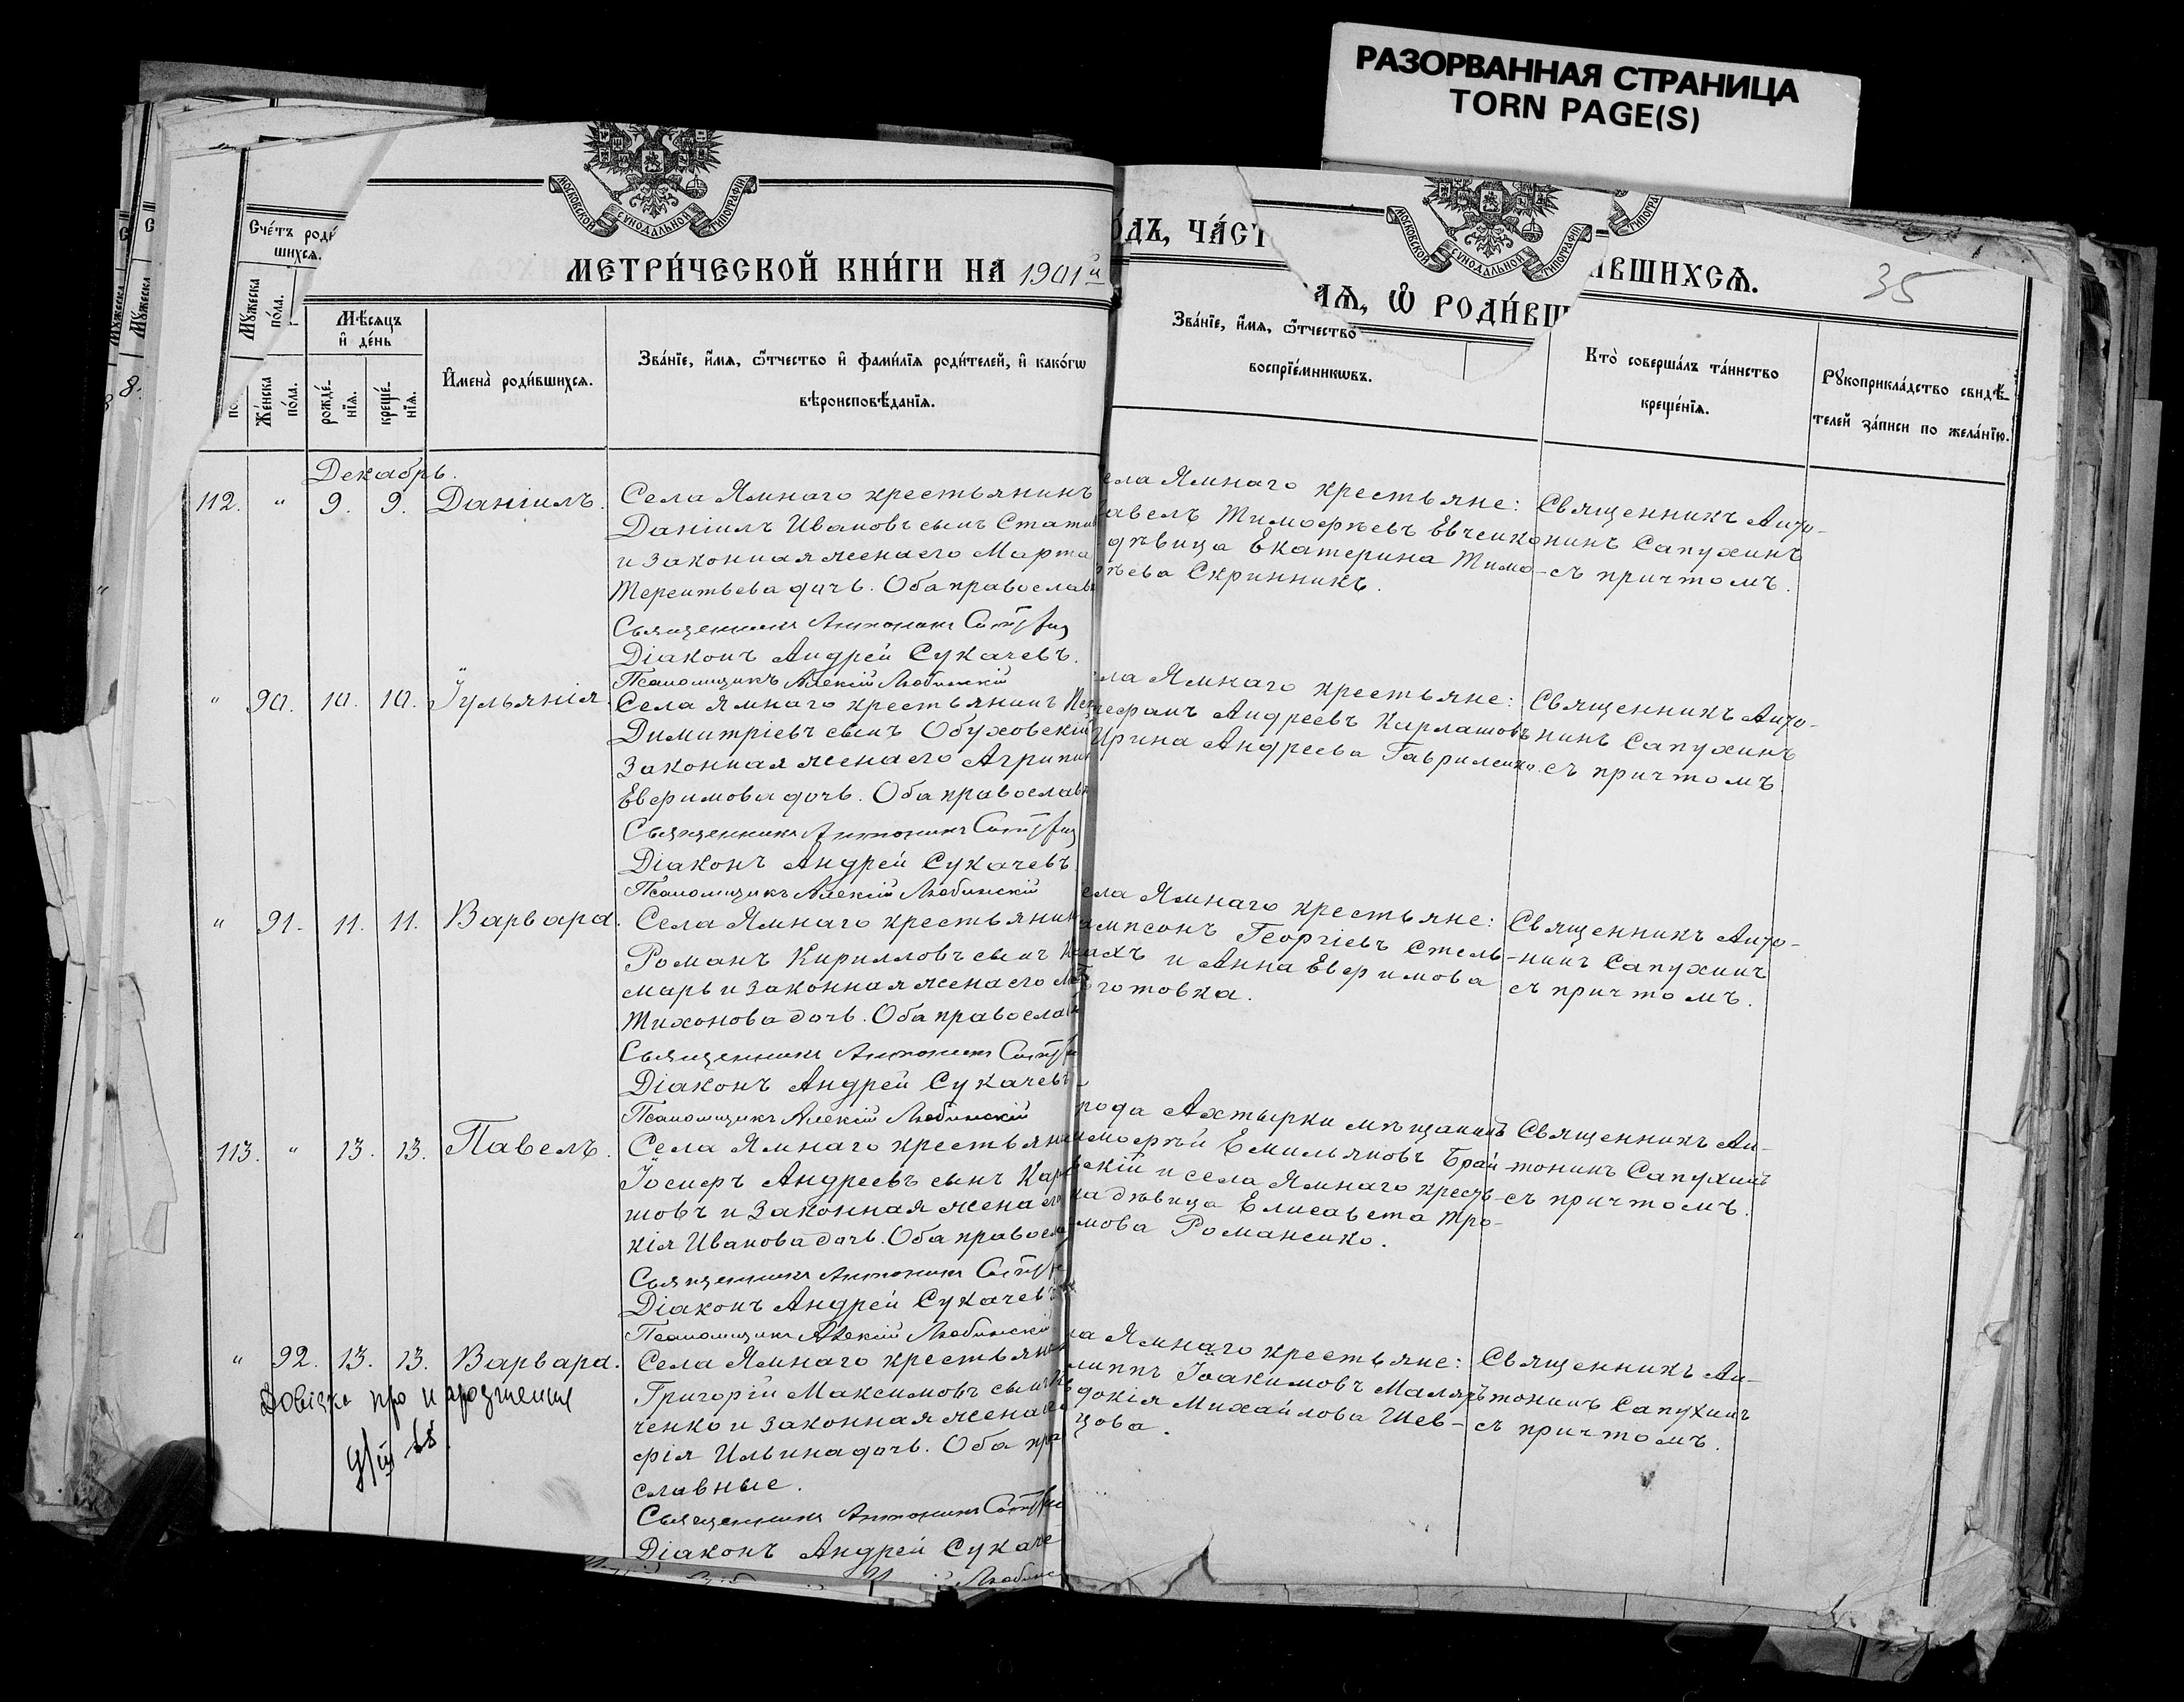 РАЗОРВАННАЯ СТРАНИЦА
TORN PAGE(S)
МОСКОВСКОЙ СУНОДАЛЬНОЙ ТИПОГРАФІИ
МОСКОВСКОЙ СУНОДАЛЬНОЙ ТИПОГРАФІИ
МЕТРИ́ЧЕСКОЙ КНИ́ГИ НА 1901й
О́ДЪ, ЧА́СТ
АѦ, Ѽ РОДИ́ВШ
И́ВШИХСѦ.
35
Сче́тъ роди́
шихсѧ.
Мꙋ́жеска по́ла.
Же́нска по́ла.
Мѣ́сѧцъ и҆ де́нь
рожде́нїѧ.
креще́нїѧ.
И҆мена̀ роди́вшихсѧ.
Зва́нїе, и҆́мѧ, ѻ҆́тчество и҆ фами́лїѧ роди́телей, и҆ како́гѡ
вѣроисповѣ́данїѧ.
Зва́нїе, и҆́мѧ, ѻ҆́тчество
воспрїе́мникѡвъ.
Кто̀ соверша́лъ та́инство
креще́нїѧ.
Рꙋкоприкла́дство свидѣ́-
телей за́писи по жела́нїю.
Декабрь.
112. " 9. 9. Даніилъ.
Села Ямнаго крестьянинъ
Даніилъ Ивановъ сынъ Стати
и законная жена его Марта
Терентьева дочь. Оба православ
Священникъ Антонинъ
Діаконъ Андрей Сукачевъ.
Псаломщикъ Алексій Любинскій
ела Ямнаго крестьяне:
авелъ Тимоѳѣевъ Евченко
дѣвица Екатерина Тимо-
ѣева Скринникъ.
Священникъ Анто-
нинъ Сапухинъ
съ причтомъ.
" 90. 10. 10. Іульянія.
Села Ямнаго крестьянинъ
Димитріевъ сынъ Обуховскій
законная жена его Агрипин
Евфимова дочь. Оба православ
Священникъ Антонинъ
Діаконъ Андрей Сукачевъ
Псаломщикъ Алексій Любинскій
ла Ямнаго крестьяне:
Андреевъ Карлашовъ
Ирина Андреева Гавриленко.
Священникъ Анто-
нинъ Сапухинъ
съ причтомъ
" 91. 11. 11. Варвара.
Села Ямнаго крестьянин
Романъ Кирилловъ сынъ
марь и законная жена его
Тихонова дочь. Оба правосла
Священникъ Антонинъ
Діаконъ Андрей Сукачевъ
Псаломщикъ Алексій Любинскій
ела Ямнаго крестьяне:
ампсонъ Георгіевъ Стель-
ахъ и Анна Евфимова
готовка.
Священникъ Анто-
нинъ Сапухинъ
съ причтомъ.
113. " 13. 13. Павелъ.
Села Ямнаго крестьян
Іосифъ Андреевъ сынъ Кар
шовъ и законная жена его
кія Иванова дочь. Оба правосл
Священникъ Антонинъ
Діаконъ Андрей Сукачевъ
Псаломщикъ Алексій Любинскій
рода Ахтырки мѣщанинъ
имоѳѣй Емильяновъ Брай-
вскій и села Ямнаго кресть-
ка дѣвица Елисавета Тро-
мова Романенко.
Священникъ Ан-
тонинъ Сапухинъ
съ причтомъ.
" 92. 13. 13. Варвара.
Довідка про народження
Села Ямнаго крестьян
Григорій Максимовъ сынъ
ченко и законная жена его
фія Ильина дочь. Оба пра
славные.
Священникъ Антонинъ
Діаконъ Андрей Сукаче
ла Ямнаго крестьяне:
липпъ Іоакимовъ Маляръ
докія Михайлова Шев-
цова.
Священникъ Ан-
тонинъ Сапухинъ
съ причтомъ.